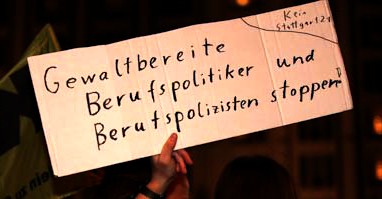 Kein
Stuttgart 21
Gewaltbereite
Berufspolitiker und
Berufspolizisten stoppen!